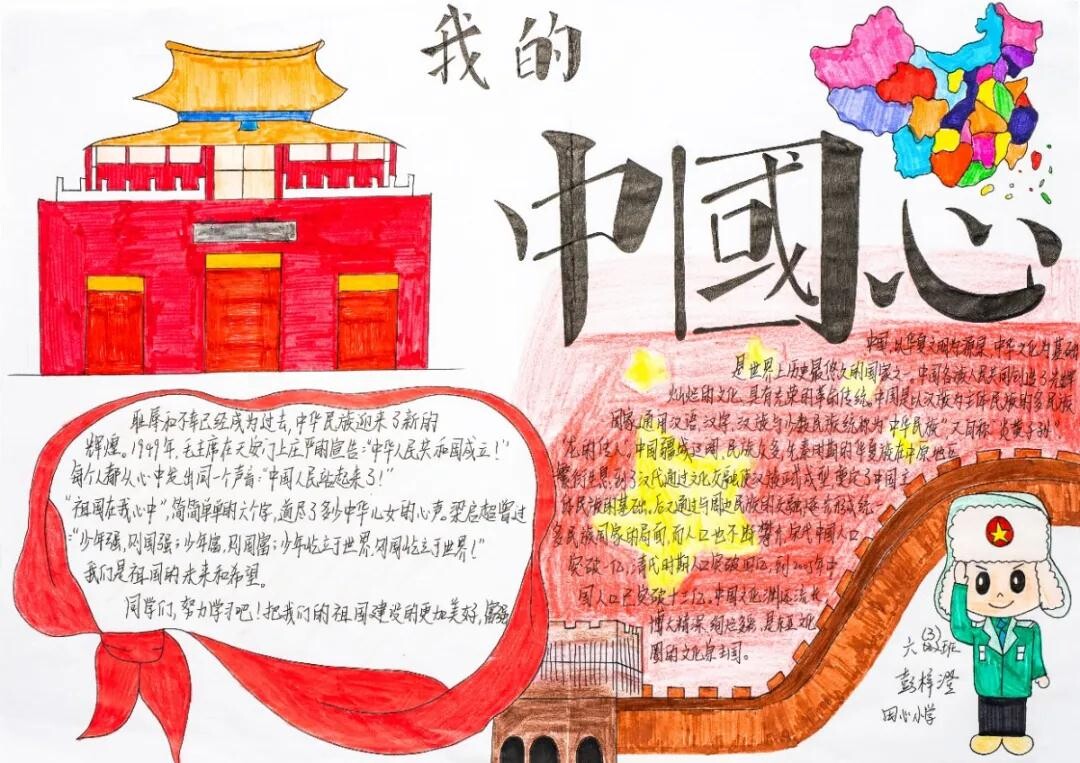 我的
中國心
耻辱和不幸已经成为过去,中华民族迎来了新的
辉煌。1949年,毛主席在天安门上庄严的宣告:“中华人民共和国成立!”
每个人都从心中发出同一个声音:“中国人民站起来了!”
“祖国在我心中”,简简单单的六个字,道尽了多少中华儿女的心声。梁启超曾过
:“少年强,则国强;少年富,则国富;少年屹立于世界,则国屹立于世界!”
我们是祖国的未来和希望。
同学们,努力学习吧!把我们的祖国建设的更加美好,富强
中国,以华夏文明为源泉、中华文化为基础
是世界上历史最悠久的国家之一。中国各族人民共同创造了光辉
灿烂的文化,具有光荣的革命传统。中国是以汉族为主体民族的多民族
国家,通用汉语、汉字,汉族与少数民族统称为“中华民族”又自称“炎黄子孙”
“龙的传人”。中国疆域辽阔,民族众多,先秦时期的华夏族在中原地区
繁衍生息,到了汉代通过文化交融使汉族正式成型,奠定了中国主
体民族的基础。后又通过与周边民族的交融,逐步形成统一
多民族国家的局面,而人口也不断攀升,宋代中国人口
突破一亿,清代时期人口突破四亿,到2005年中
国人口已突破十三亿。中国文化渊远流长、
博大精深、绚烂多彩,是东亚文化
圈的文化宗主国。
六(3)班
彭梓澄
田心小学